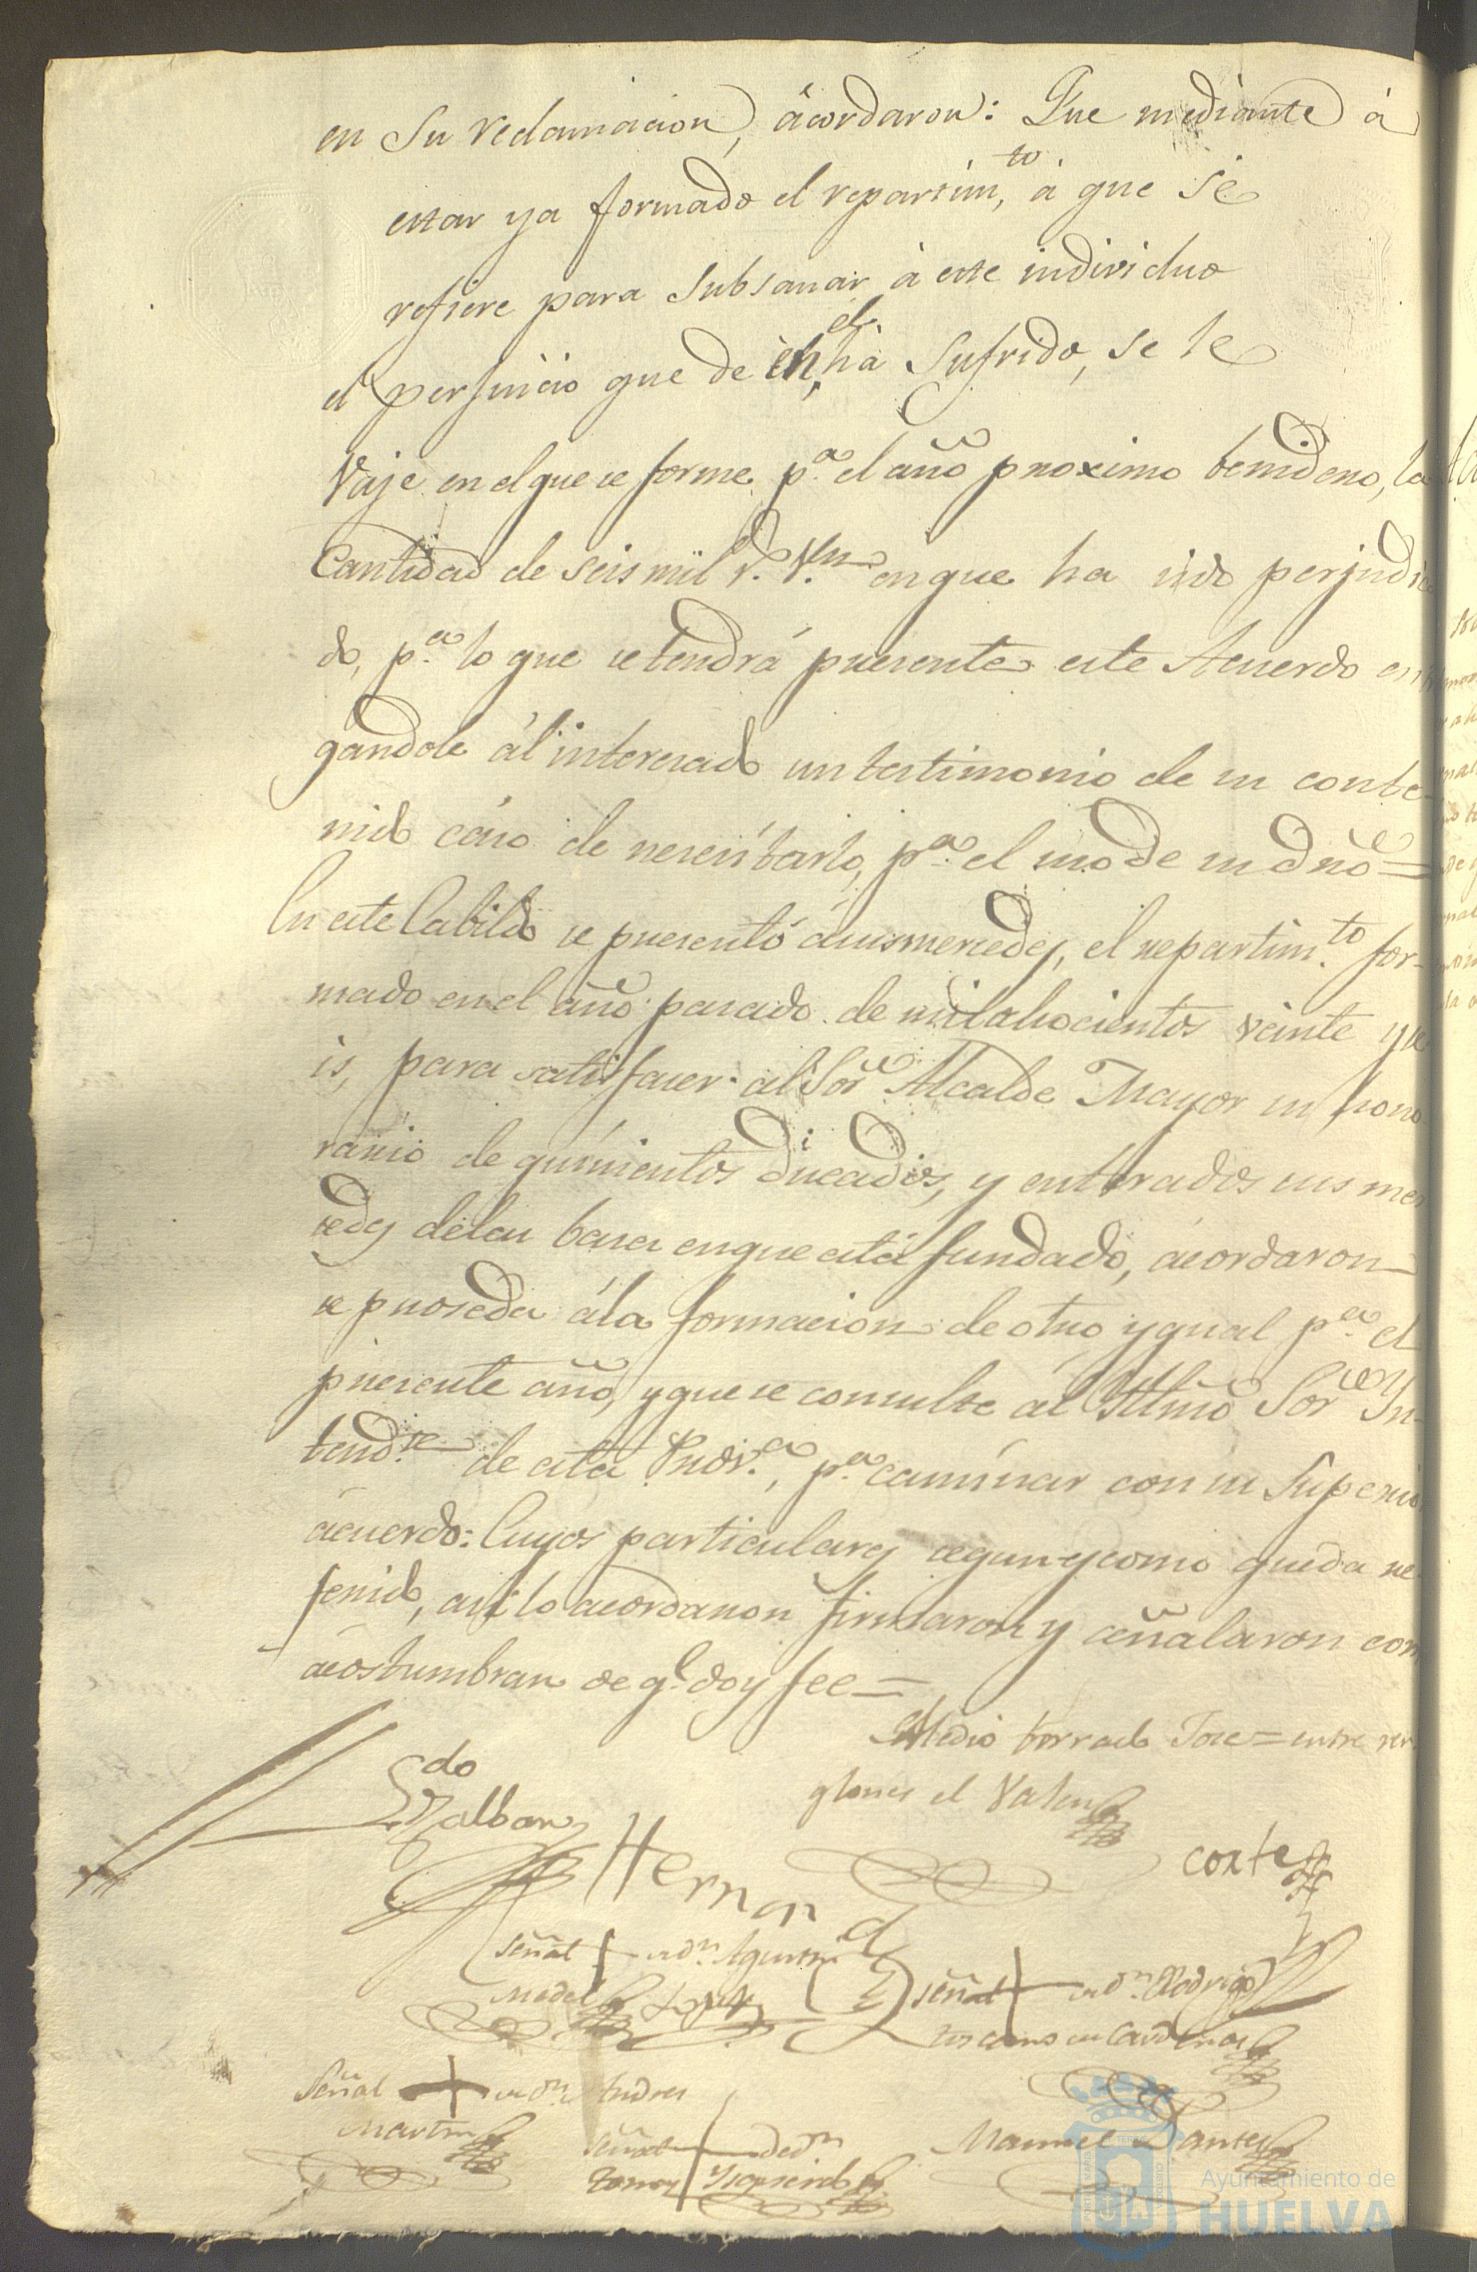 en Su reclamacion, ácordaron: Que mediante á
estar ya formado el repartim.to á que se
refiere para Subsanar á este individuo
el perjuicio que de él ha Sufrido, se le
Vaje en el que se forme p.a el año proximo benidero, la
Cantidad de seis mil r.s V.n en que ha sido perjudica
do, p.a lo que se tendrá presente este Acuerdo entre
gandole ál interesado un testimonio de su conte-
nido cáso de nesesitarlo, p.a el uso de su dro =
En este Cabildo se presentó ásus mercedes, el repartim.to for-
mado en el año pasado de mil ahocientos veinte y se
is, para satisfacer al Sor Alcalde Mayor su hono
rario de quinientos ducados, y enterados sus mer
cedes dela base en que está fundado, ácordaron
se proseda ála formacion de otro ygual p.a el
presente año, y que se consulte ál Yltmo Sor Yn-
tend.te de esta Prov.a, p.a caminar con su Superior
ácuerdo: Cuyos particulares segun y como queda re-
ferido, asi lo acordaron firmaron y señalaron como
ácostumbran de q.e doy fee =
Medio borrado Jose = entre ren
glones el Valen
Ldo
Galban
Hernand
Cortes
Señal + de dn Agustin
Madel
Lopez
ez
Señal + de dn Rodrigo
toscano de Cardenas
Señal + de dn Andres
Martin
Señal + de dn
tomas Yzquierdo
Manuel de Santos
Ayuntamiento de
HUELVA